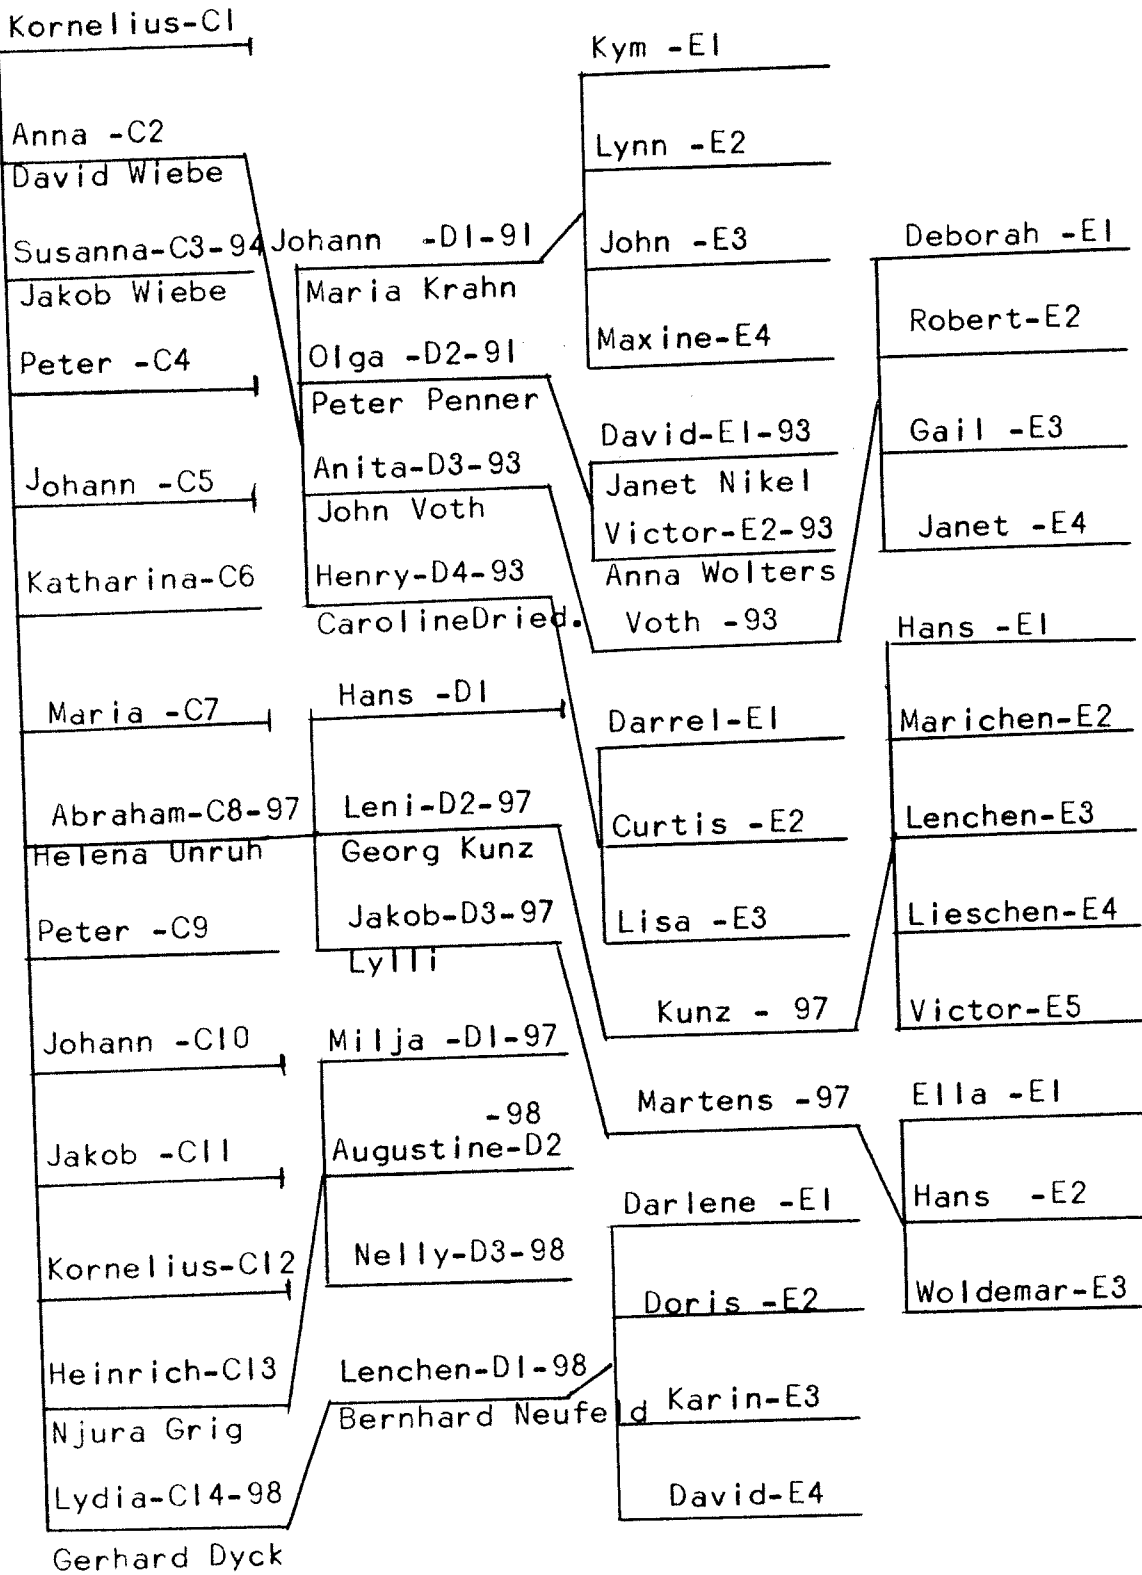 Kornelius-C1
Anna -C2
David Wiebe
Susanna-C3-94
Jakob Wiebe
Peter -C4
Johann -C5
Katharina-C6
Maria -C7
Abraham-C8-97
Helena Unruh
Peter -C9
Johann -C10
Jakob -C11
Kornelius-C12
Heinrich-C13
Njura Grig
Lydia-C14-98
Gerhard Dyck
Johann -D1-91
Maria Krahn
Olga -D2-91
Peter Penner
Anita-D3-93
John Voth
Henry-D4-93
CarolineDried.
Hans -D1
Leni-D2-97
Georg Kunz
Jakob-D3-97
Lylli
Milja -D1-97
-98
Augustine-D2
Nelly-D3-98
Lenchen-D1-98
Bernhard Neufeld
Kym -E1
Lynn -E2
John -E3
Maxine-E4
David-E1-93
Janet Nikel
Victor-E2-93
Anna Wolters
Voth -93
Darrel-E1
Curtis -E2
Lisa -E3
Kunz - 97
Martens -97
Darlene -E1
Doris -E2
Karin-E3
David-E4
Deborah -E1
Robert-E2
Gail -E3
Janet -E4
Hans -E1
Marichen-E2
Lenchen-E3
Lieschen-E4
Victor-E5
Ella -E1
Hans -E2
Woldemar-E3